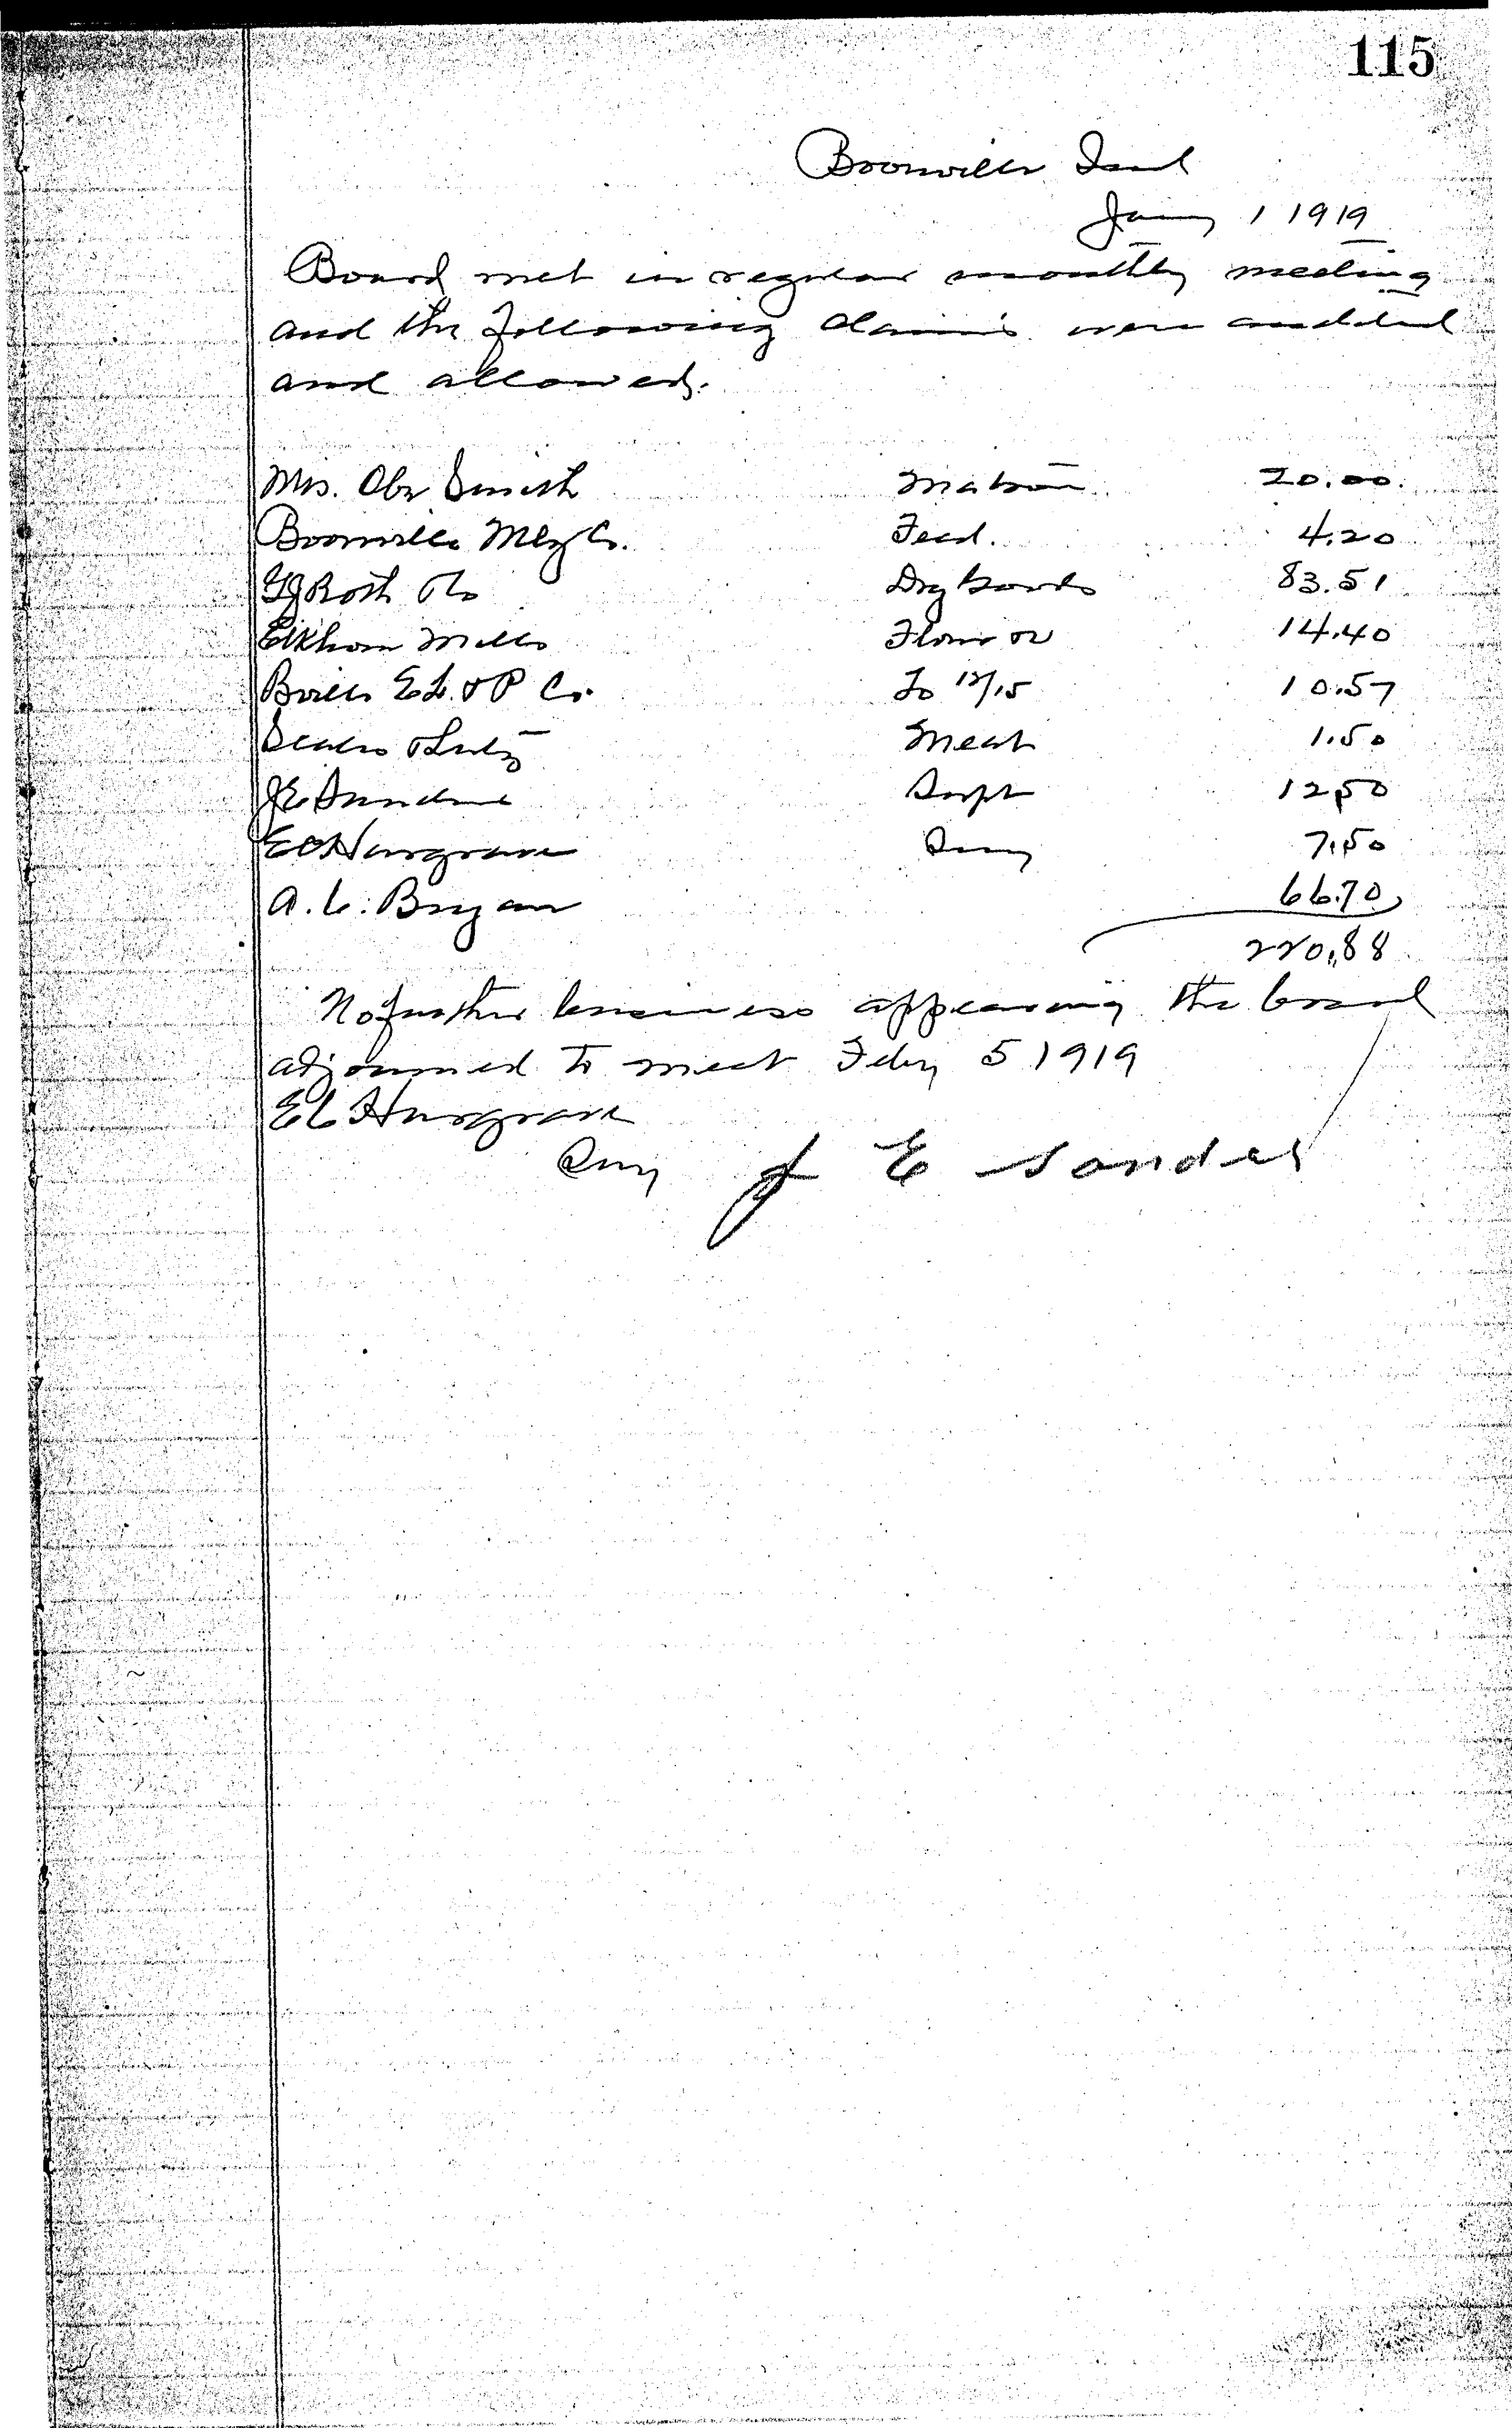 115
Boonville Ind
Jany 1 1919
Board met in regular monthly meeting
and the following claims were audited
and allowed.
Mrs. Obe Smith Matron 20.00
Boonville Mlg Co. Feed. 4.20
Roth Dry Goods 83.51
Elkhorn Mills Flour 14.40
Bville E L & P Co. To 12/15 10.57
& Lutz Meat 1.50
J E Supt 12.50
E C Hargrave Secy 7.50
A. C. Bryan 66.70
220.88
No further business appearing the board
adjourned to meet Feby 5 1919
E C Hargrave
Secy J E Sander